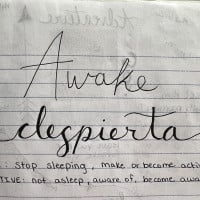 Awake
despierta
: stop sleeping, make or become acti
TIVE: not asleep, aware of, become awa